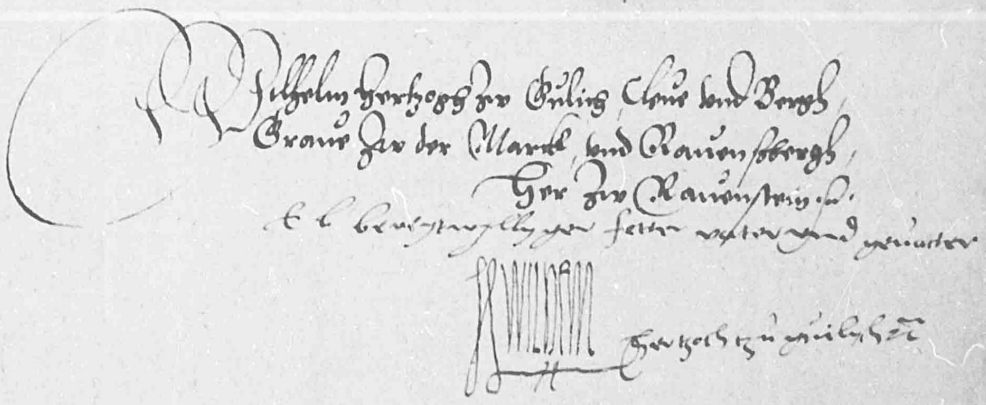 Wilhelm Hertzogh zu Gulich, Cleve vnd Bergh,
Grave zu der Marck, vnd Ravenssbergh,
Her zu Ravenstein
E l vater vnd gevatter
Wilhelm hertzoch tzu guilich